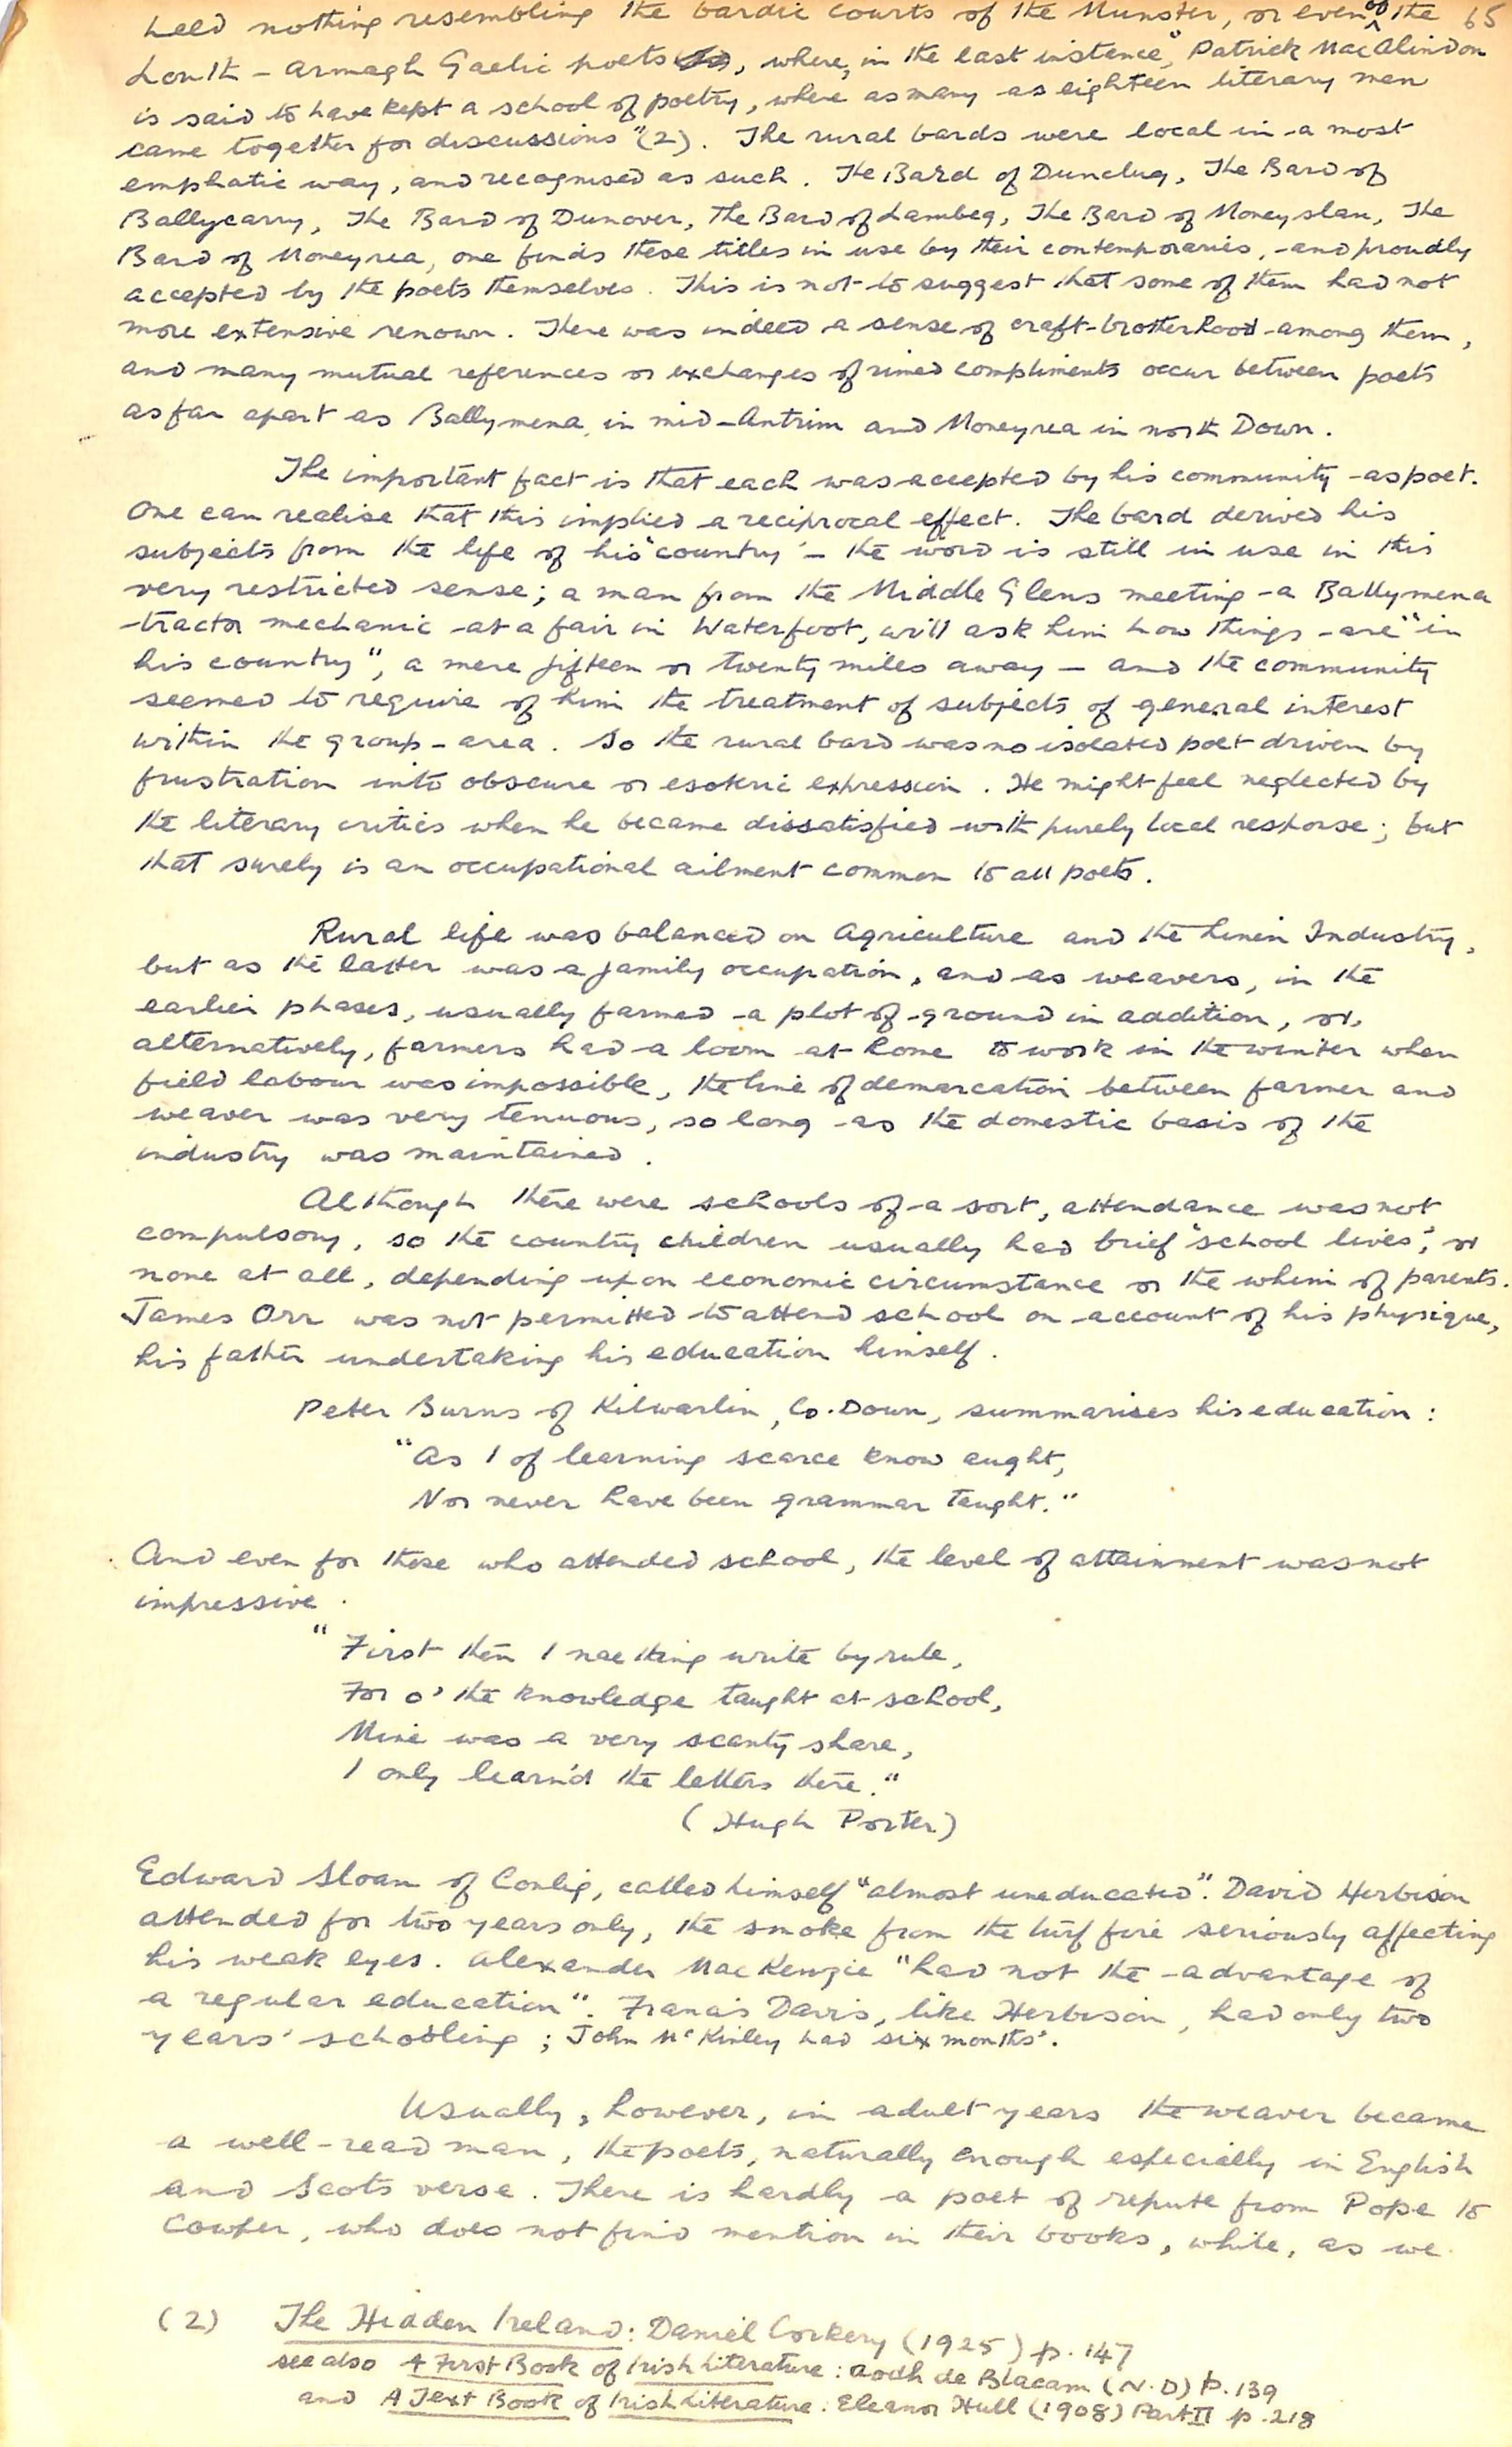 heed nothing resembling the bardic courts of the Munster, or even of the 65
Louth - Armagh Gaelic poets, where, in the last instance, "Patrick MacAlindon
is said to have kept a school of poetry, where as many as eighteen literary men
came together for discussions" (2). The rural bards were local in a most
emphatic way, and recognised as such. The Bard of Dunclug, The Bard of
Ballycarry, The Bard of Dunover, The Bard of Lambeg, The Bard of Moneyslan, The
Bard of Moneyrea, one finds these titles in use by their contemporaries, and proudly
accepted by the poets themselves. This is not to suggest that some of them had not
more extensive renown. There was indeed a sense of craft-brotherhood among them,
and many mutual references or exchanges of rimed compliments occur between poets
as far apart as Ballymena, in mid-Antrim and Moneyrea in north Down.
The important fact is that each was accepted by his community as poet.
One can realise that this implied a reciprocal effect. The bard derived his
subjects from the life of his "country" - the word is still in use in this
very restricted sense; a man from the Middle Glens meeting a Ballymena
tractor mechanic at a fair in Waterfoot, will ask him how things are "in
his country", a mere fifteen or twenty miles away - and the community
seemed to require of him the treatment of subjects of general interest
within the group-area. So the rural bard was no isolated poet driven by
frustration into obscure or esoteric expression. He might feel neglected by
the literary critics when he became dissatisfied with purely local response; but
that surely is an occupational ailment common to all poets.
Rural life was balanced on Agriculture and the Linen Industry,
but as the latter was a family occupation, and as weavers, in the
earlier phases, usually farmed a plot of ground in addition, or,
alternatively, farmers had a loom at home to work in the winter when
field labour was impossible, the line of demarcation between farmer and
weaver was very tenuous, so long as the domestic basis of the
industry was maintained.
Although there were schools of a sort, attendance was not
compulsory, so the country children usually had brief "school lives", or
none at all, depending upon economic circumstance or the whim of parents.
James Orr was not permitted to attend school on account of his physique,
his father undertaking his education himself.
Peter Burns of Kilwarlin, Co. Down, summarises his education:
"As I of learning scarce know aught,
Nor never have been grammar taught."
And even for those who attended school, the level of attainment was not
impressive.
"First then I nae thing write by rule,
For o' the knowledge taught at school,
Mine was a very scanty share,
I only learn'd the letters there."
(Hugh Porter)
Edward Sloan of Conlig, called himself "almost uneducated". David Herbison
attended for two years only, the smoke from the turf fire seriously affecting
his weak eyes. Alexander MacKenzie "had not the advantage of
a regular education". Francis Davis, like Herbison, had only two
years' schooling; John McKinley had six months'.
Usually, however, in adult years the weaver became
a well-read man, the poets, naturally enough especially in English
and Scots verse. There is hardly a poet of repute from Pope to
Cowper, who does not find mention in their books, while, as we
(2) The Hidden Ireland: Daniel Corkery (1925) p. 147
see also A First Book of Irish Literature: Aodh de Blacam (N.D) p. 139
and A Text Book of Irish Literature: Eleanor Hull (1908) Part II p. 218